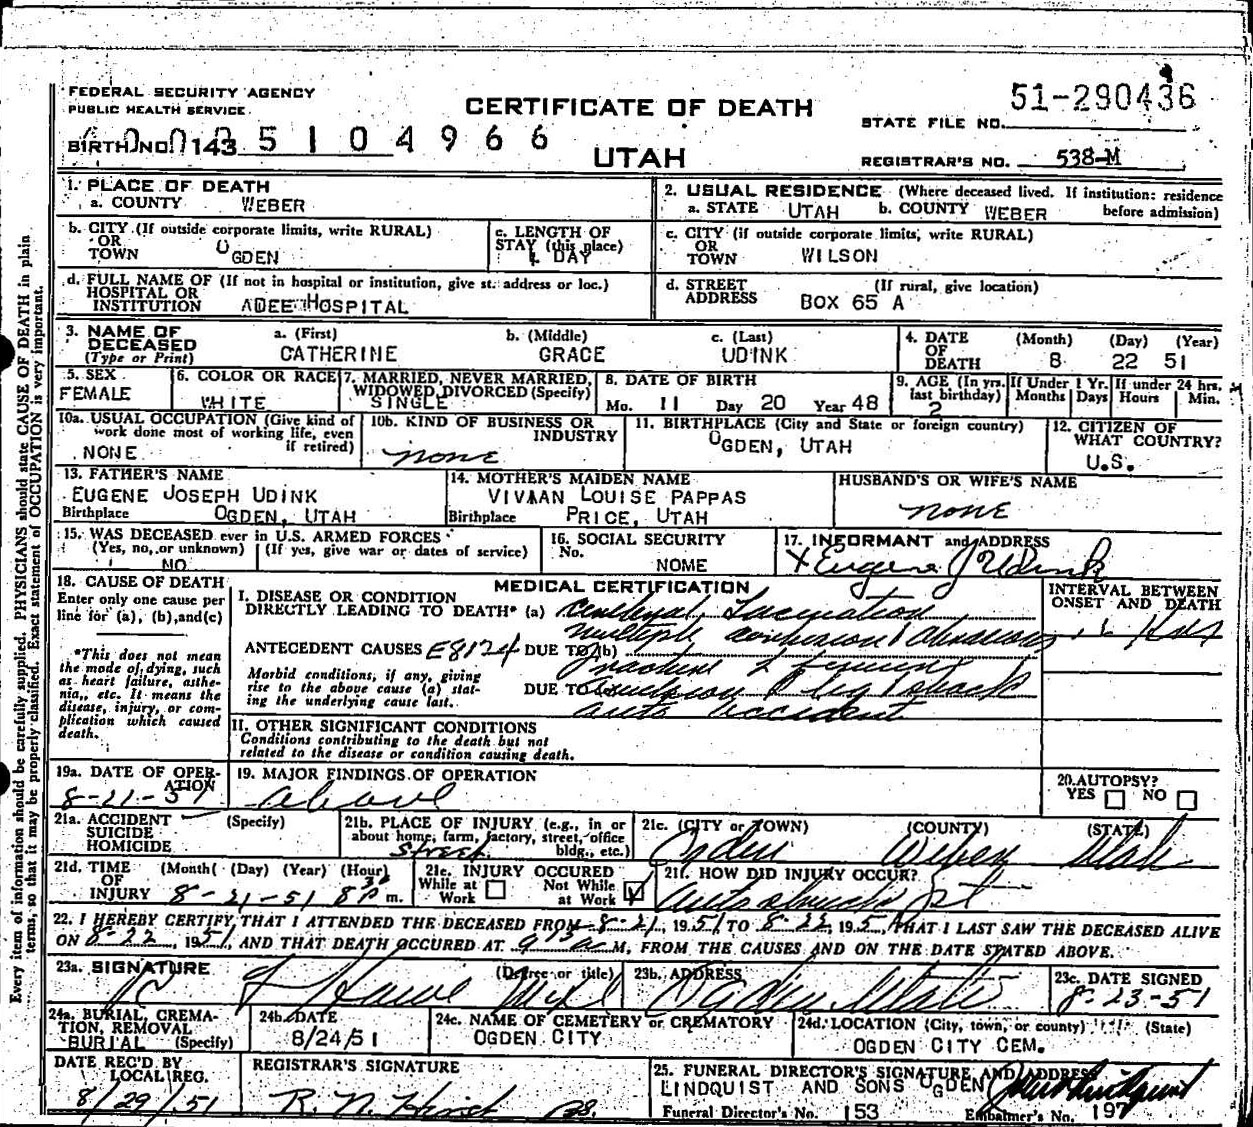 FEDERAL SECURITY AGENCY
PUBLIC HEALTH SERVICE
CERTIFICATE OF DEATH
51-290436
STATE FILE NO.
BIRTH NO. 143 5104966
UTAH
REGISTRAR'S NO. 538-M
Every item of information should be carefully supplied. PHYSICIANS should state CAUSE OF DEATH in plain
terms, so that it may be properly classified. Exact statement of OCCUPATION is very important.
1. PLACE OF DEATH
a. COUNTY WEBER
2. USUAL RESIDENCE (Where deceased lived. If institution: residence
a. STATE UTAH b. COUNTY WEBER before admission)
b. CITY (If outside corporate limits, write RURAL)
OR
TOWN OGDEN
c. LENGTH OF
STAY (this place)
1 DAY
c. CITY (if outside corporate limits, write RURAL)
OR
TOWN WILSON
d. FULL NAME OF (If not in hospital or institution, give st. address or loc.)
HOSPITAL OR
INSTITUTION ADEE HOSPITAL
d. STREET (If rural, give location)
ADDRESS BOX 65 A
3. NAME OF DECEASED
(Type or Print)
a. (First) b. (Middle) c. (Last)
CATHERINE GRACE UDINK
4. DATE OF DEATH
(Month) (Day) (Year)
8 22 51
5. SEX
FEMALE
6. COLOR OR RACE
WHITE
7. MARRIED, NEVER MARRIED,
WIDOWED, DIVORCED (Specify)
SINGLE
8. DATE OF BIRTH
Mo. 11 Day 20 Year 48
9. AGE (In yrs. last birthday)
2
If Under 1 Yr.
Months Days
If under 24 hrs.
Hours Min.
10a. USUAL OCCUPATION (Give kind of
work done most of working life, even
if retired)
NONE
10b. KIND OF BUSINESS OR
INDUSTRY
none
11. BIRTHPLACE (City and State or foreign country)
OGDEN, UTAH
12. CITIZEN OF
WHAT COUNTRY?
U.S.
13. FATHER'S NAME
EUGENE JOSEPH UDINK
Birthplace OGDEN, UTAH
14. MOTHER'S MAIDEN NAME
VIVIAN LOUISE PAPPAS
Birthplace PRICE, UTAH
HUSBAND'S OR WIFE'S NAME
none
15. WAS DECEASED ever in U.S. ARMED FORCES
(Yes, no, or unknown) (If yes, give war or dates of service)
NO
16. SOCIAL SECURITY
No.
NOME
17. INFORMANT and ADDRESS
x Eugene J Udink
18. CAUSE OF DEATH
Enter only one cause per
line for (a), (b), and (c)
*This does not mean
the mode of dying, such
as heart failure, asthe-
nia, etc. It means the
disease, injury, or com-
plication which caused
death.
MEDICAL CERTIFICATION
I. DISEASE OR CONDITION
DIRECTLY LEADING TO DEATH* (a) cerebral laceration
multiple contusion & abrasions
ANTECEDENT CAUSES E8124 DUE TO (b)
fracture
Morbid conditions, if any, giving
rise to the above cause (a) stat-
ing the underlying cause last.
DUE TO
auto accident
INTERVAL BETWEEN
ONSET AND DEATH
II. OTHER SIGNIFICANT CONDITIONS
Conditions contributing to the death but not
related to the disease or condition causing death.
19a. DATE OF OPERATION
8-21-51
19. MAJOR FINDINGS OF OPERATION
above
20. AUTOPSY?
YES NO
21a. ACCIDENT (Specify)
SUICIDE
HOMICIDE
21b. PLACE OF INJURY (e.g., in or
about home, farm, factory, street, office
bldg., etc.)
street
21c. (CITY or TOWN) (COUNTY) (STATE)
Ogden Weber Utah
21d. TIME OF INJURY
(Month) (Day) (Year) (Hour)
8-21-51 8 30 m.
21e. INJURY OCCURED
While at Work
Not While at Work
21f. HOW DID INJURY OCCUR?
Auto struck pt
22. I HEREBY CERTIFY, THAT I ATTENDED THE DECEASED FROM 8-21, 1951 TO 8-22, 1951, THAT I LAST SAW THE DECEASED ALIVE
ON 8-22, 1951, AND THAT DEATH OCCURED AT M, FROM THE CAUSES AND ON THE DATE STATED ABOVE.
23a. SIGNATURE
(Degree or title)
23b. ADDRESS
Ogden Utah
23c. DATE SIGNED
8-23-51
24a. BURIAL, CREMA-
TION, REMOVAL
BURIAL (Specify)
24b. DATE
8/24/51
24c. NAME OF CEMETERY or CREMATORY
OGDEN CITY
24d. LOCATION (City, town, or county) (State)
OGDEN CITY CEM.
DATE REC'D BY
LOCAL REG.
8/29/51
REGISTRAR'S SIGNATURE
25. FUNERAL DIRECTOR'S SIGNATURE AND ADDRESS
LINDQUIST AND SONS OGDEN
Funeral Director's No. 153 Embalmer's No. 197